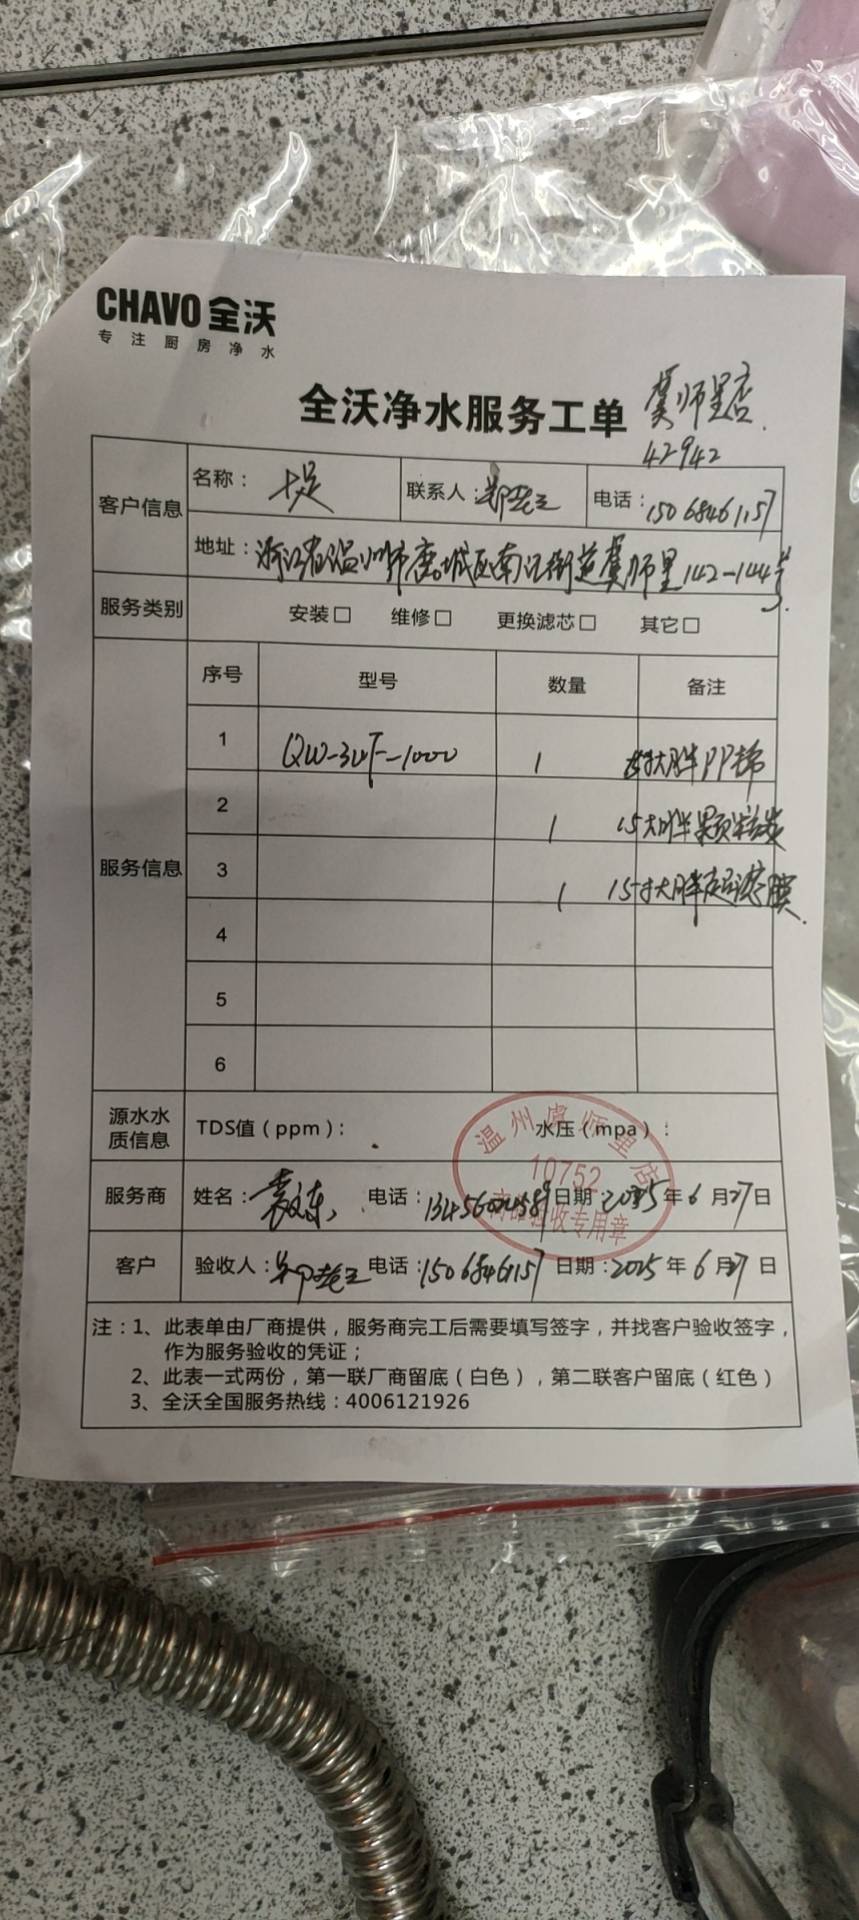 CHAVO 全沃
专注厨房净水
全沃净水服务工单 虞师里店
42942
客户信息 名称： 十足 联系人： 电话：15068461157
地址：浙江省温州市鹿城区南汇街道虞师里142-144号
服务类别 安装□ 维修□ 更换滤芯□ 其它□
服务信息 序号 型号 数量 备注
1 QW-3UF-1000 1 寸大胖PP棉
2 1 15大胖颗粒炭
3 1 15寸大胖超滤膜
4
5
6
源水水质信息 TDS值（ppm）： 水压（mpa）：
温州虞师里店
10752
验收专用章
服务商 姓名： 电话： 日期：2025年6月27日
客户 验收人： 电话：15068461157 日期：2025年6月27日
注：1、此表单由厂商提供，服务商完工后需要填写签字，并找客户验收签字，
作为服务验收的凭证；
2、此表一式两份，第一联厂商留底（白色），第二联客户留底（红色）
3、全沃全国服务热线：4006121926